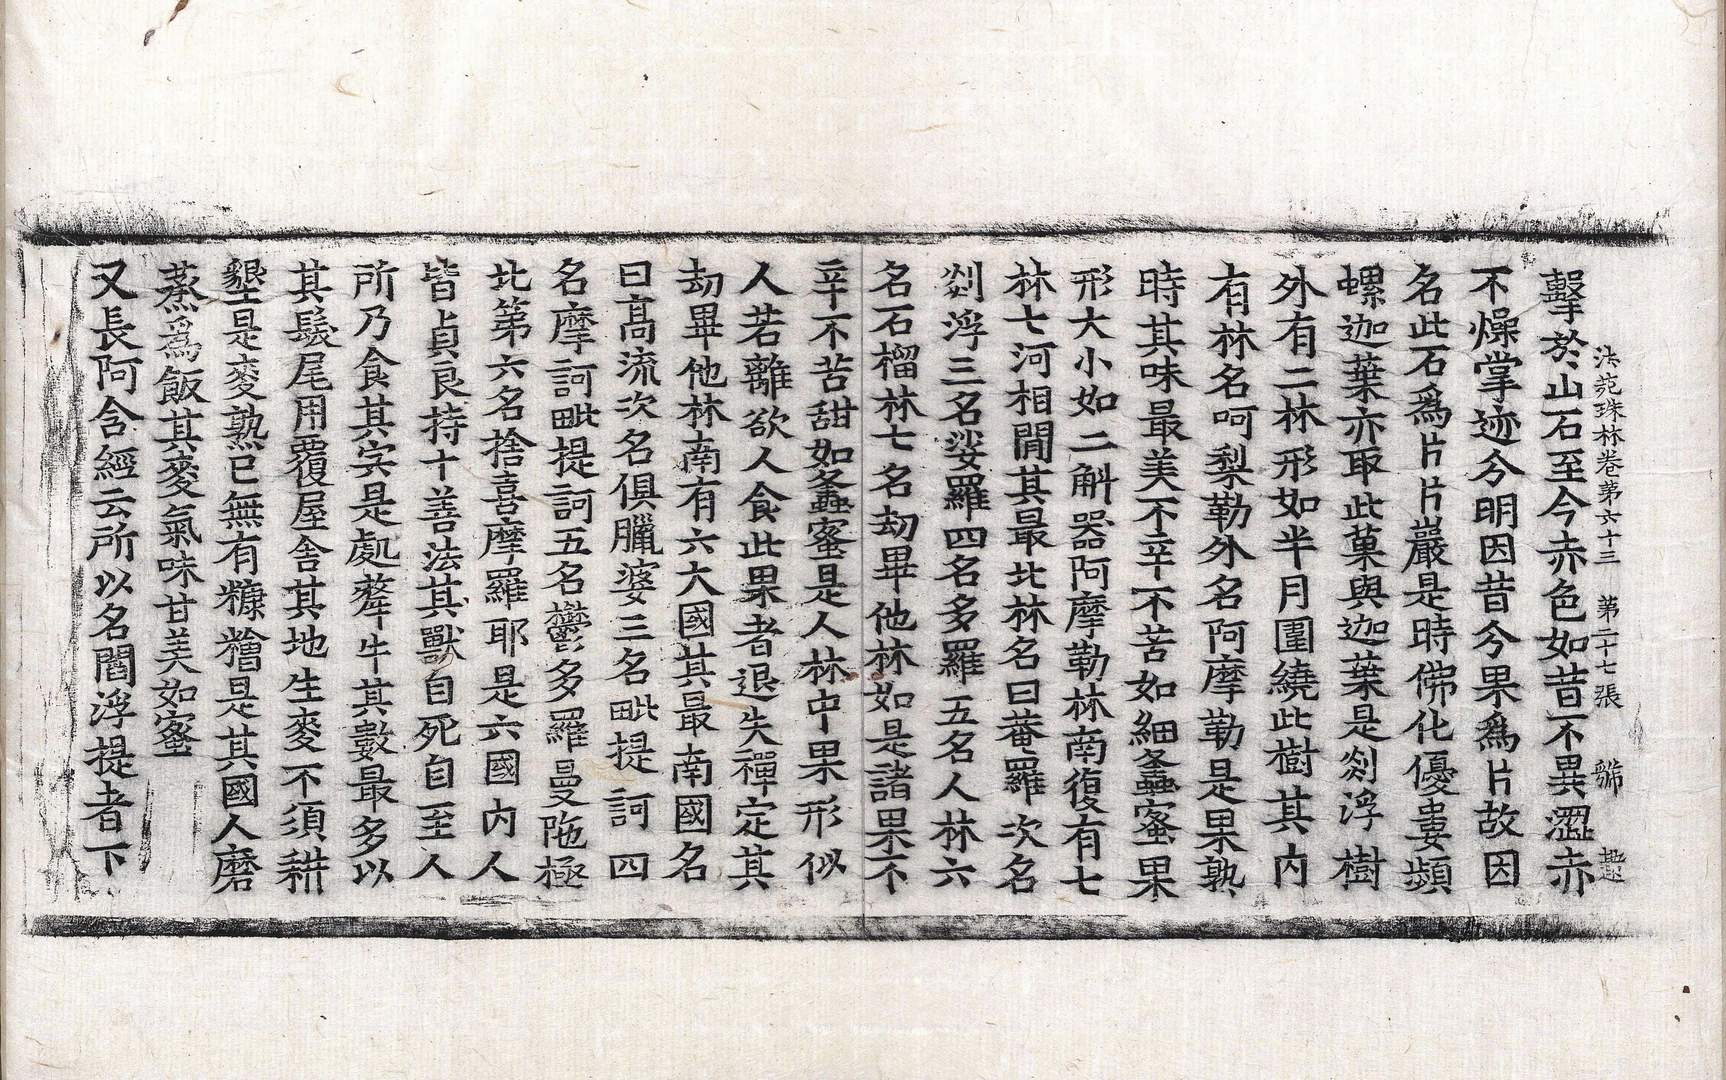 法苑珠林卷第六十三 第二十七張 號
擊於山石至今赤色如昔不異濕赤
不燥掌迹分明因昔分果爲片故因
名此石爲片片巖是時佛化優婁頻
螺迦葉亦取此菓與迦葉是剡浮樹
外有二林形如半月圍繞此樹其內
有林名呵梨勒外名阿摩勒是果熟
時其味最美不辛不苦如細蠭蜜果
形大小如二斛器阿摩勒林南復有七
林七河相閒其最北林名曰菴羅次名
剡浮三名娑羅四名多羅五名人林六
名石榴林七名劫畢他林如是諸果不
辛不苦甜如蠭蜜是人林中果形似
人若離欲人食此果者退失禪定其
劫畢他林南有六大國其最南國名
曰高流次名俱臘婆三名毗提訶四
名摩訶毗提訶五名鬱多羅曼陁極
北第六名捨喜摩羅耶是六國內人
皆貞良持十善法其獸自死自至人
所乃食其宍是處犛牛其數最多以
其髮尾用覆屋舍其地生麥不須耕
墾是麥熟已無有糠糩是其國人磨
蒸爲飯其麥氣味甘美如蜜
又長阿含經云所以名閻浮提者下